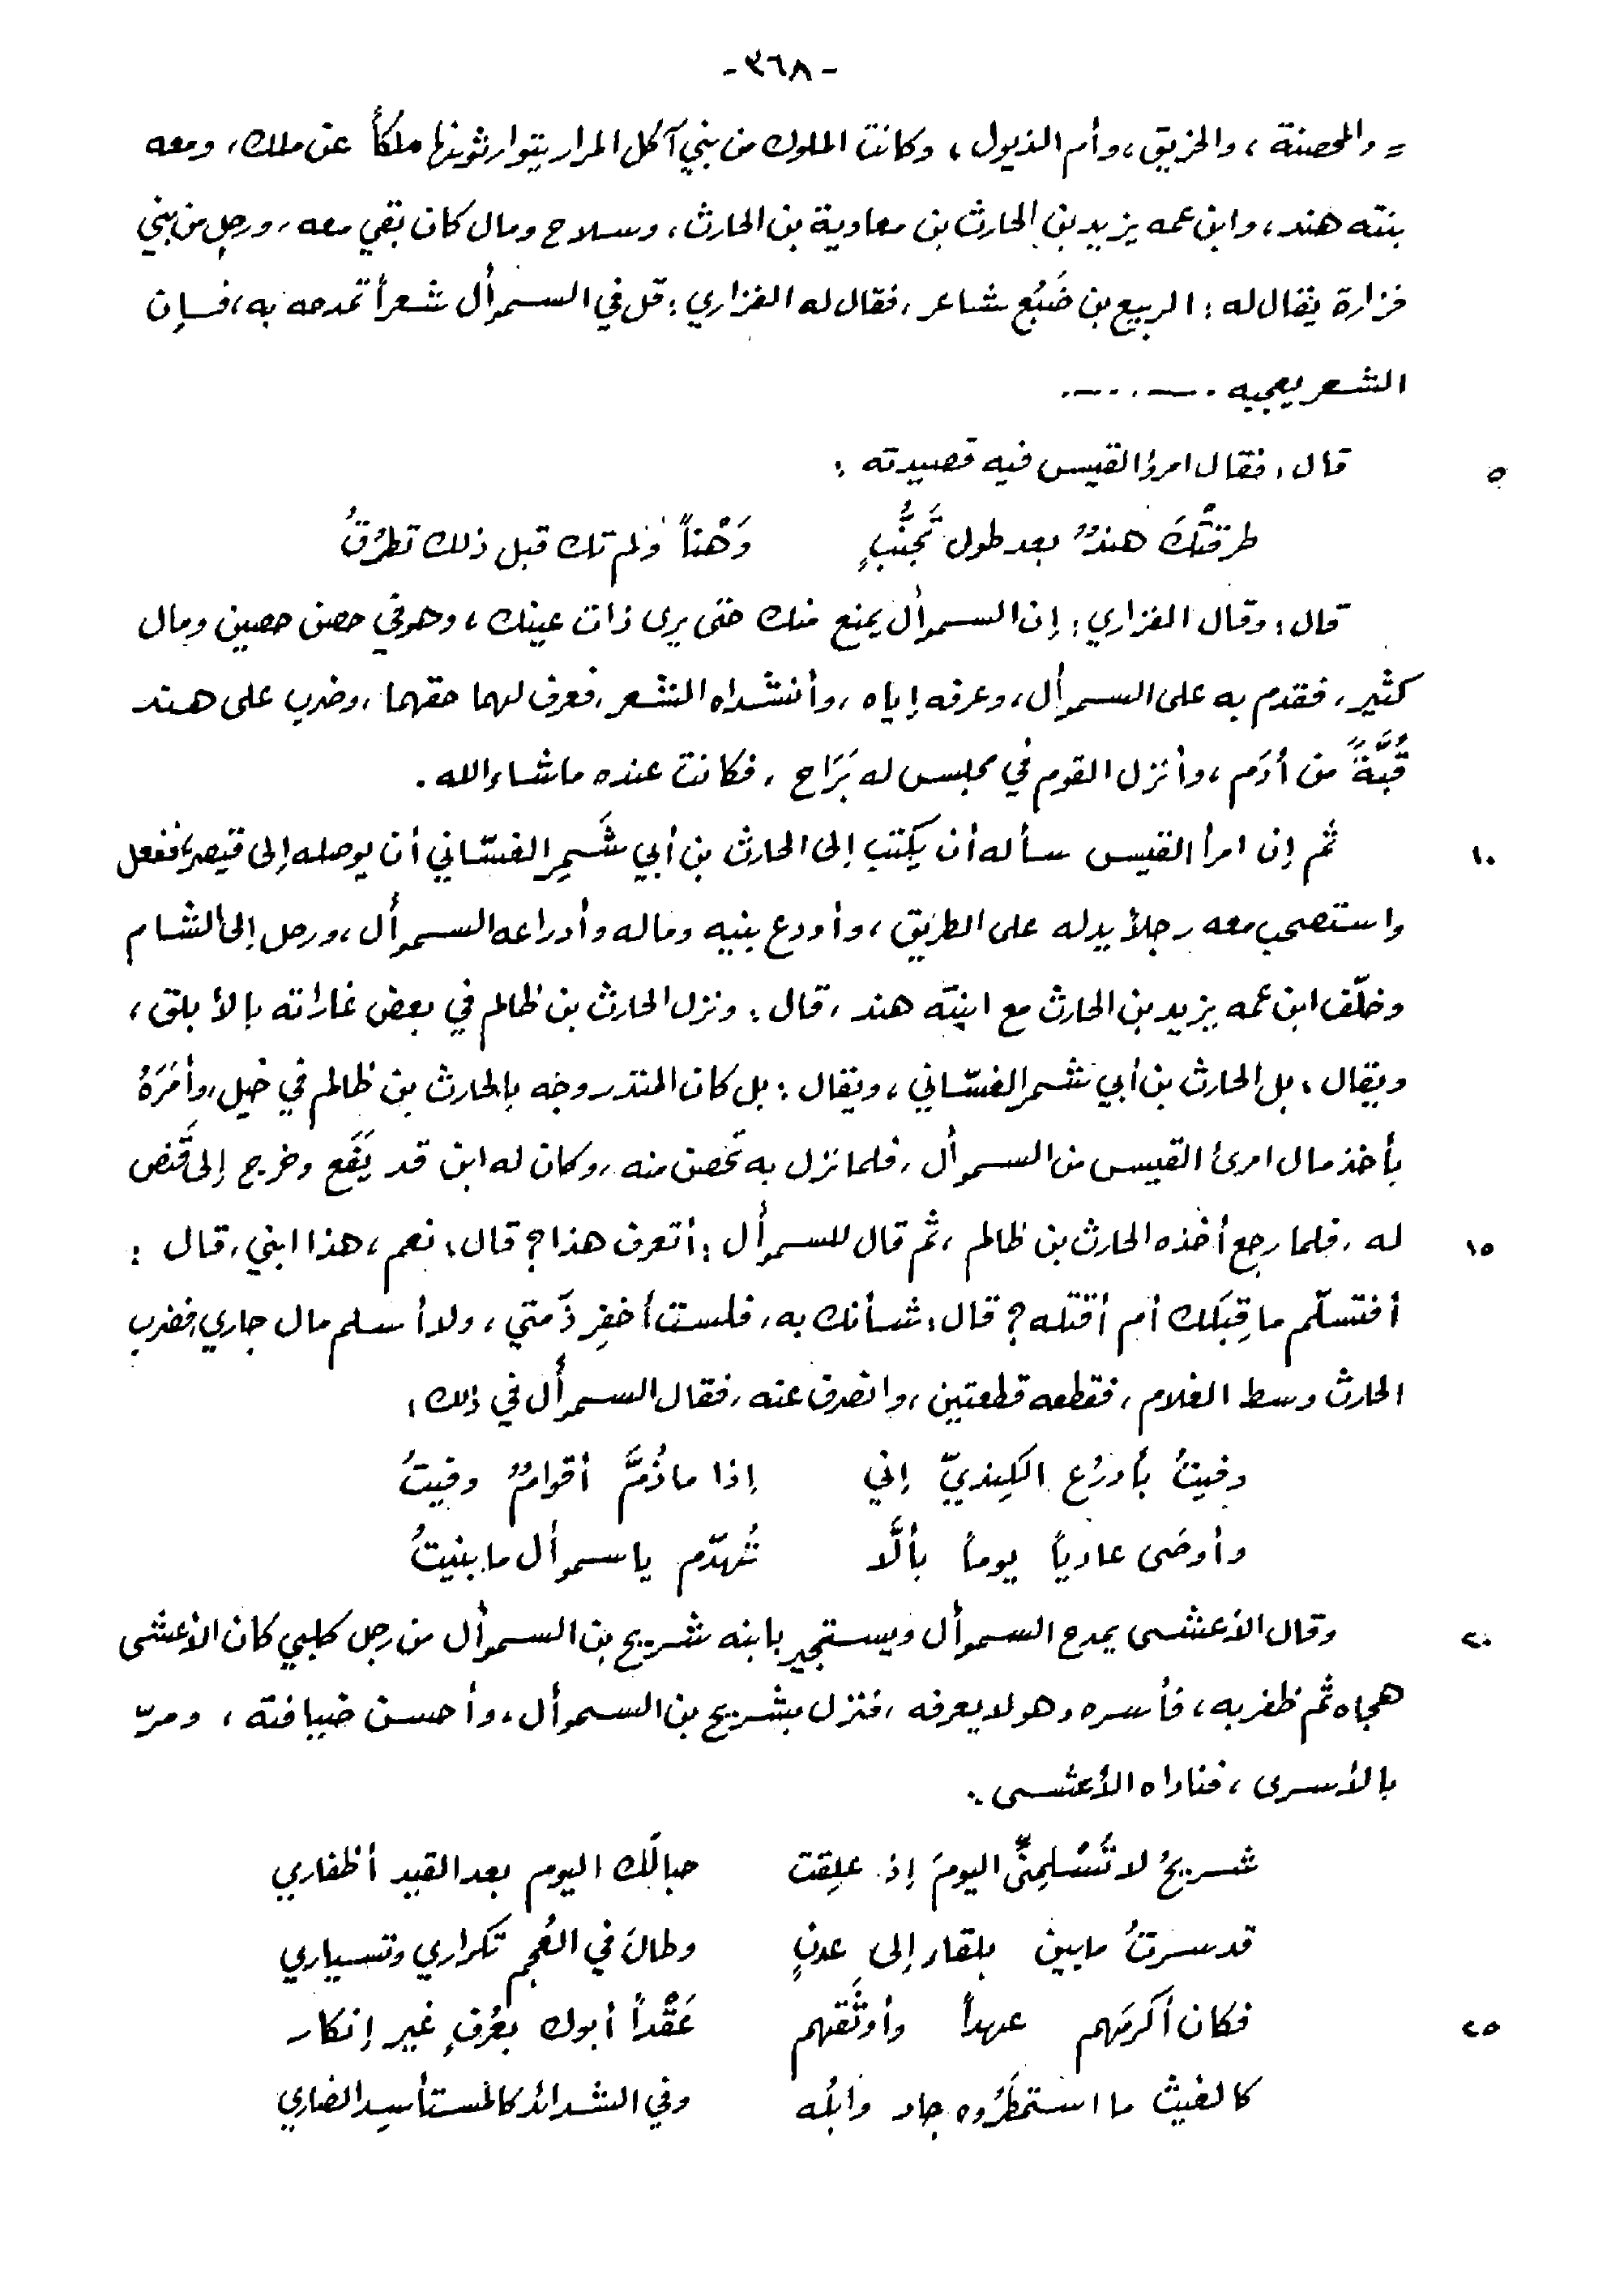 -٣٦٨-
= والمحصنة، والخريق، وأم الذيول، وكانت الملوك من بني آكل المرار يتوارثونها ملكاً عن ملك، ومعه
بنته هند، وابن عمه يزيد بن الحارث بن معاوية بن الحارث، وسلاح ومال كان بقي معه، ورجل من بني
فزارة يقال له: الربيع بن ضَبُع شاعر، فقال له الفزاري: قل في السموأل شعراً تمدحه به، فإن
الشعر يعجبه .--..--.
٥ قال: فقال امرؤ القيس فيه قصيدته:
طرقتْكَ هندٌ بعد طول تَجَنُّبٍ وَهْناً ولم تك قبل ذلك تطرُقُ
قال: وقال الفزاري: إن السموأل يمنع منك حتى يرى ذات عينك، وهو في حصن حصين ومال
كثير، فقدم به على السموأل، وعرفه إياه، وأنشداه الشعر، فعرف لهما حقهما، وضرب على هند
قُبَّةً من أدَم، وأنزل القوم في مجلس له بَرَاح، فكانت عنده ما شاء الله.
١٠ ثم إن امرأ القيس سأله أن يكتب إلى الحارث بن أبي شَمِر الغسّاني أن يوصله إلى قيصر، ففعل
واستصحب معه رجلاً يدله على الطريق، وأودع بنيه وماله وأدراعه السموأل، ورحل إلى الشام
وخلّف ابن عمه يزيد بن الحارث مع ابنته هند، قال: ونزل الحارث بن ظالم في بعض غاراته بالأبلق،
ويقال: بل الحارث بن أبي شمر الغسّاني، ويقال: بل كان المنذر وجه بالحارث بن ظالم في خيل، وأمَرَهُ
بأخذ مال امرئ القيس من السموأل، فلما نزل به تحصن منه، وكان له ابن قد يَفَع وخرج إلى قَنص
١٥ له، فلما رجع أخذه الحارث بن ظالم، ثم قال للسموأل: أتعرف هذا؟ قال: نعم، هذا ابني، قال:
أفتسلّم ما قِبَلك أم أقتله؟ قال: شأنك به، فلست أخفِر ذّمتي، ولا أسلم مال جاري، فضرب
الحارث وسط الغلام، فقطعه قطعتين، وانصرف عنه، فقال السموأل في ذلك:
وفيتُ بأدرُع الكِنديّ إني إذا ما ذُمَّ أقوامٌ وفيتُ
وأوصَى عادياً يوماً بألَّا تُهدّم يا سموأل ما بنيتُ
٢٠ وقال الأعشى يمدح السموأل ويستجير بابنه شريح بن السموأل من رجل كلبي كان الأعشى
هجاه ثم ظفر به، فأسره وهو لا يعرفه، فنزل بشريح بن السموأل، وأحسن ضيافته، ومرّ
بالأسرى، فناداه الأعشى:
شريحُ لا تَسْلِمنِّي اليومَ إذ علِقت حبالَك اليوم بعد القيد أظفاري
قد سرتُ ما بين بلقاء إلى عدنٍ وطالَ في العُجم تكراري وتسياري
٢٥ فكان أكرمَهم عهداً وأوثَقهم عَقْداً أبوك بعُرفٍ غير إنكار
كالغيث ما استمطَرُوه جاد وابلُه وفي الشدائد كالمستأسِد الضاري